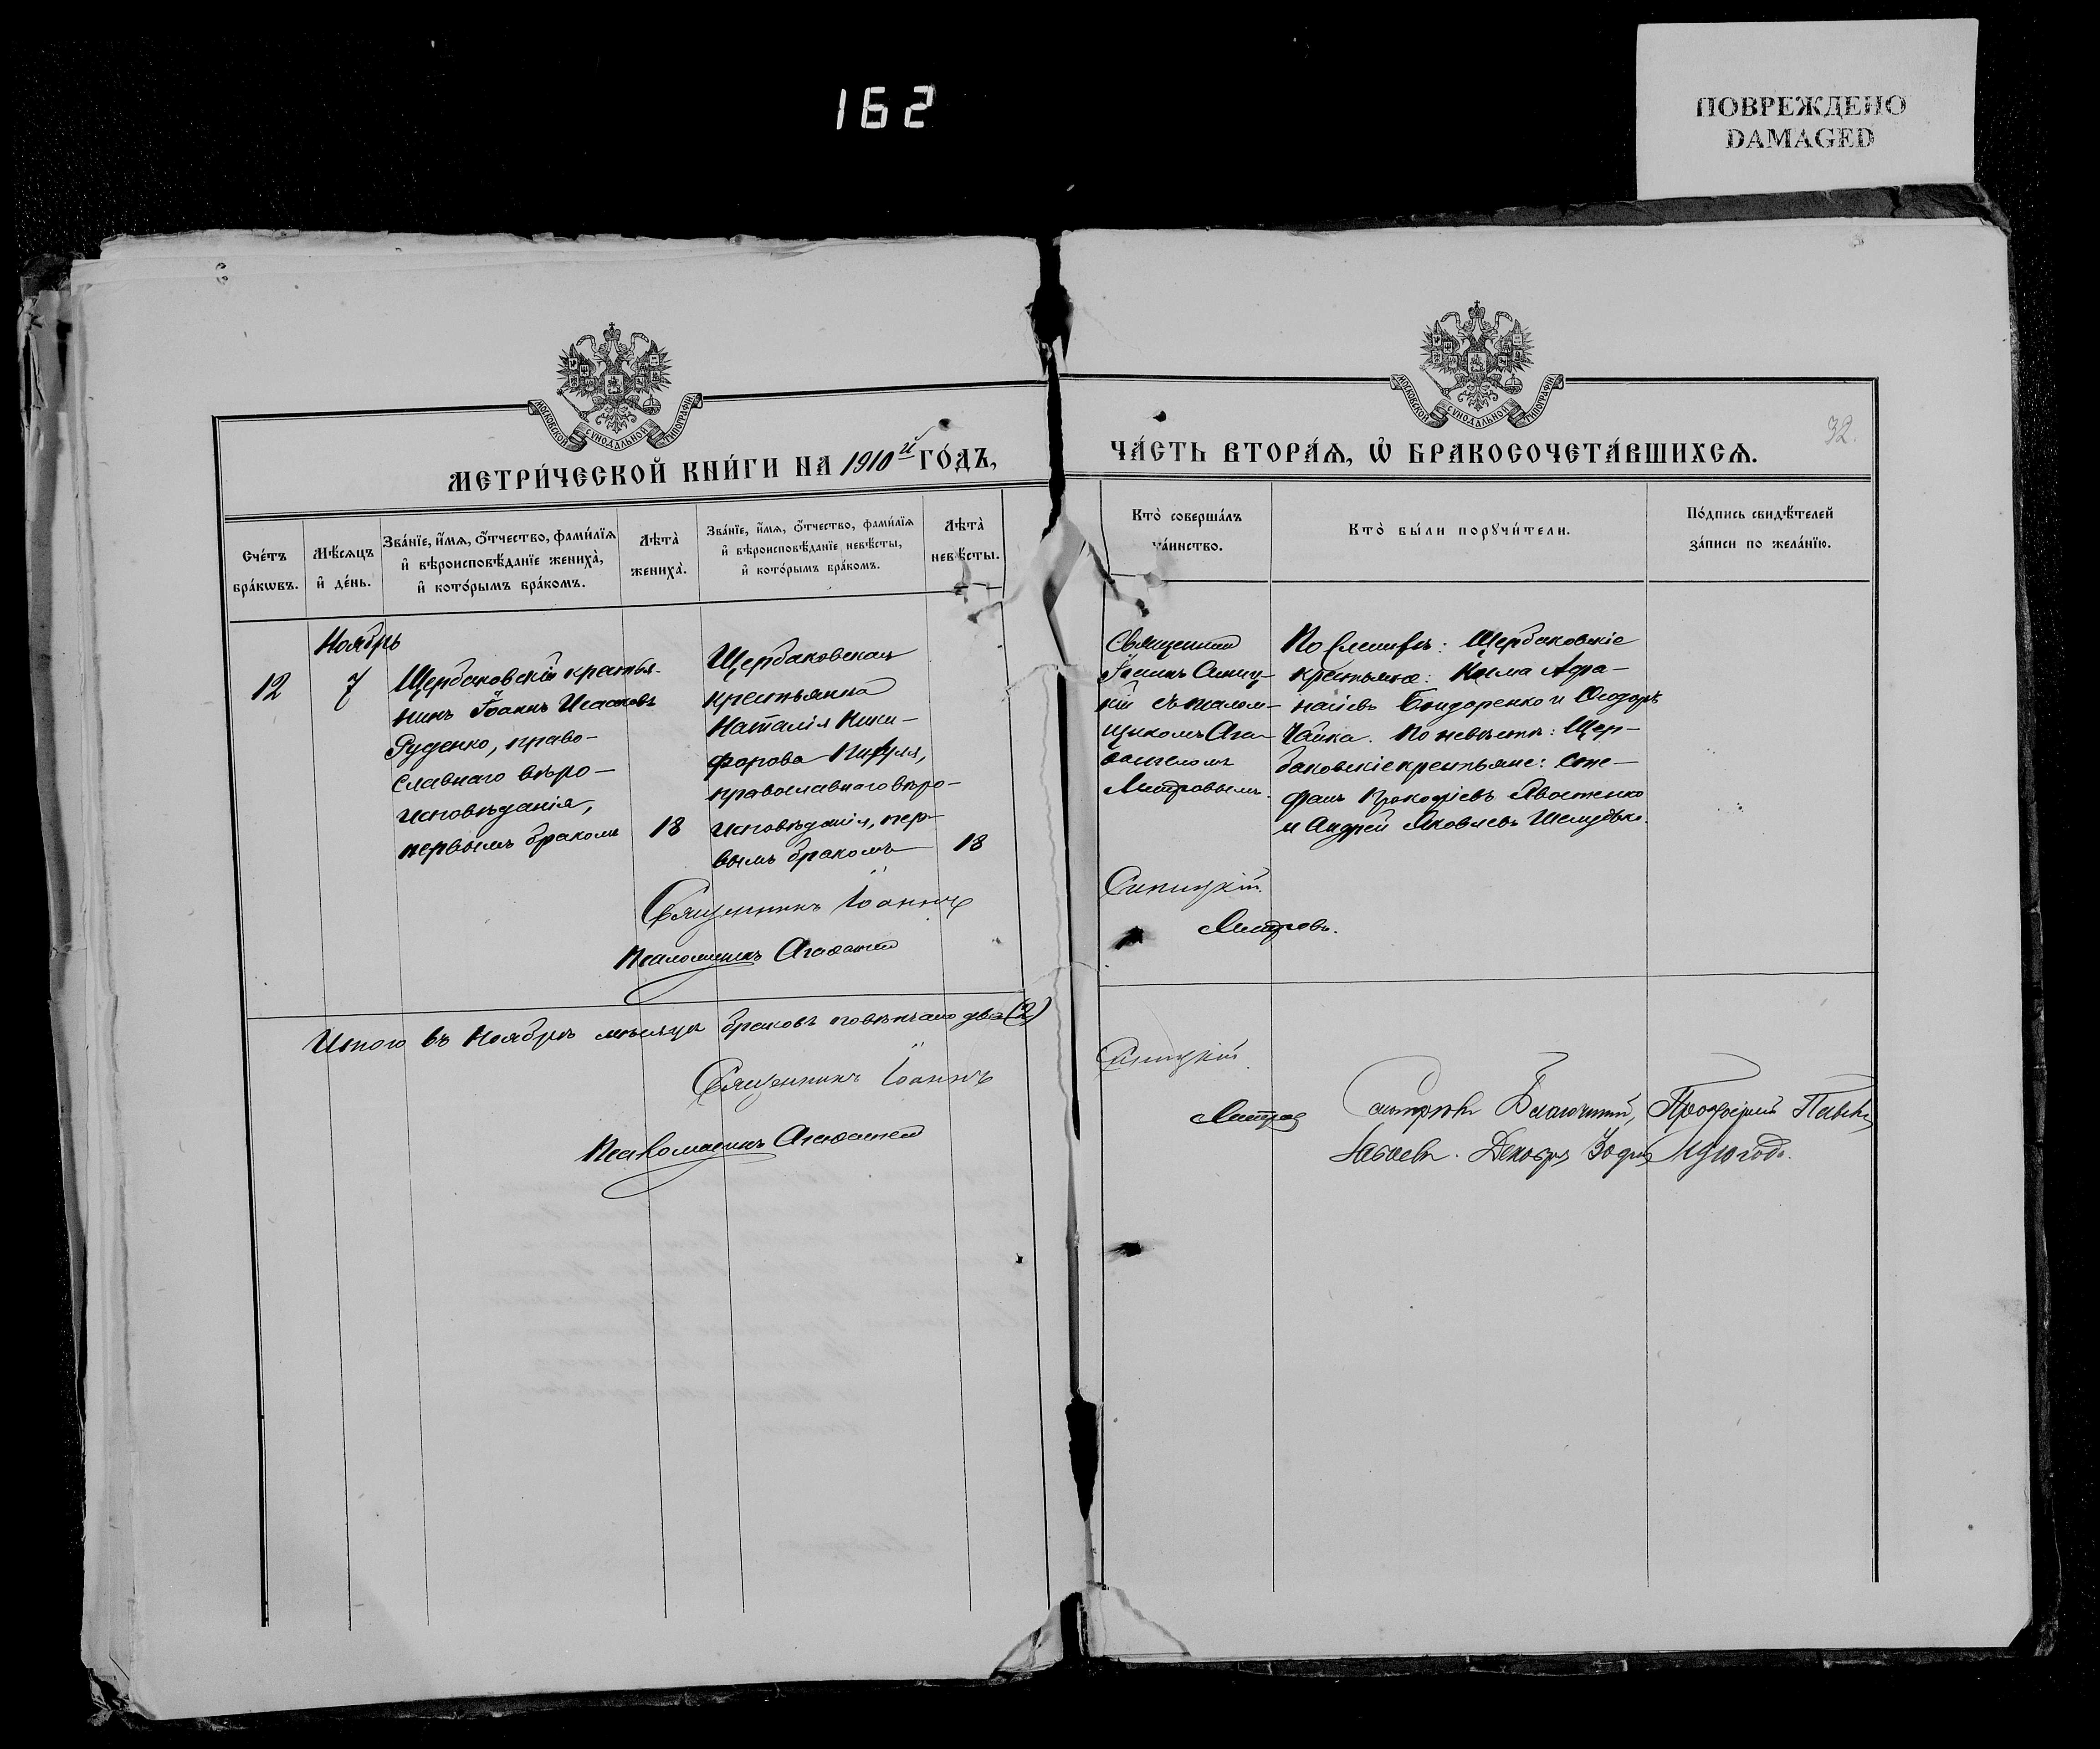 162
ПОВРЕЖДЕНО
DAMAGED
МОСКОВСКОЙ СѴНОДАЛЬНОЙ ТИПОГРАФІИ
МЕТРИ́ЧЕСКОЙ КНИ́ГИ НА 1910й ГО́ДЪ,
Сче́тъ бра́кѡвъ.
Мѣ́сяцъ и҆ де́нь.
Зва́нїе, и҆́мѧ, ѻ҆́тчество, фами́лїѧ и҆ вѣроисповѣ́данїе жениха̀, и҆ кото́рымъ бра́комъ.
Лѣта̀ жениха̀.
Зва́нїе, и҆́мѧ, ѻ҆́тчество, фами́лїѧ и҆ вѣроисповѣ́данїе невѣ́сты, и҆ кото́рымъ бра́комъ.
Лѣта̀ невѣ́сты.
Ноябрь
12
7
Щербаковскій крестья-
нинъ Іоаннъ Исааковъ
Руденко, право-
славнаго вѣро-
исповѣданія,
первымъ бракомъ
18
Щербаковская
крестьянка
Наталія Ники-
форова
православнаго вѣро-
исповѣданія, пер-
вымъ бракомъ
18
Священникъ Іоаннъ
Псаломщикъ
Итого въ Ноябрѣ мѣсяцѣ браковъ повѣнчано два (2)
Священникъ Іоаннъ
Псаломщикъ
МОСКОВСКОЙ СѴНОДАЛЬНОЙ ТИПОГРАФІИ
32.
ЧА́СТЬ ВТОРА́Ѧ, Ѡ҆ БРАКОСОЧЕТА́ВШИХСѦ.
Кто̀ соверша́лъ та́инство.
Кто̀ бы́ли порꙋчи́тели.
По́дпись свидѣ́телей за́писи по жела́нїю.
Священникъ
Іоаннъ Синиц-
кій съ псалом-
щикомъ Ага-
Митровымъ.
По женихѣ: Щербаковскіе
крестьяне: Козма Афа-
насіевъ Бондаренко и Ѳеодоръ
Чайка. По невѣстѣ: Щер-
баковскіе крестьяне: Сте-
фанъ Прокофіевъ Явтенко
и Андрей Яковлевъ
Синицкій.
Митровъ.
Синицкій.
Митров
Смотрѣлъ Благочинный, Протоіерей Павелъ
Декабря 30 дня 1910 года.